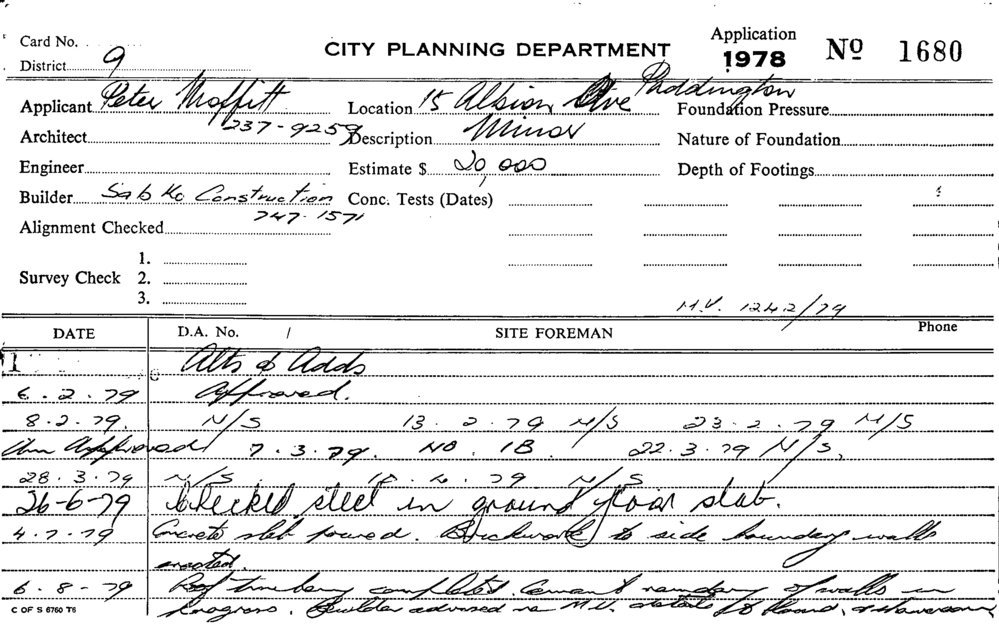 Card No.
CITY PLANNING DEPARTMENT
Application
1978
No 1680
District 9
Applicant Peter Moffitt
237-9259
Location 15 Albion Ave Paddington
Foundation Pressure
Architect
Description Minor
Nature of Foundation
Engineer
Estimate $ 20,000
Depth of Footings
Builder Sabko Construction
747-1571
Conc. Tests (Dates)
Alignment Checked
Survey Check
1.
2.
3.
M.V. 1242/79
DATE D.A. No. / SITE FOREMAN Phone
Alts & Adds
6.2.79 Approved.
8.2.79. N/S 13.2.79 N/S 23.2.79 N/S
Am Approved 7.3.79. NO IB. 22.3.79 N/S.
28.3.79 N/S 79 N/S
26-6-79 Checked steel in ground floor slab.
4.7.79 Concrete slab poured. Brickwork to side boundary walls
erected.
6.8-79 Roof timbers completed. Cement rendering of walls in
progress. Builder advised re M.V. details
C OF S 6760 T6